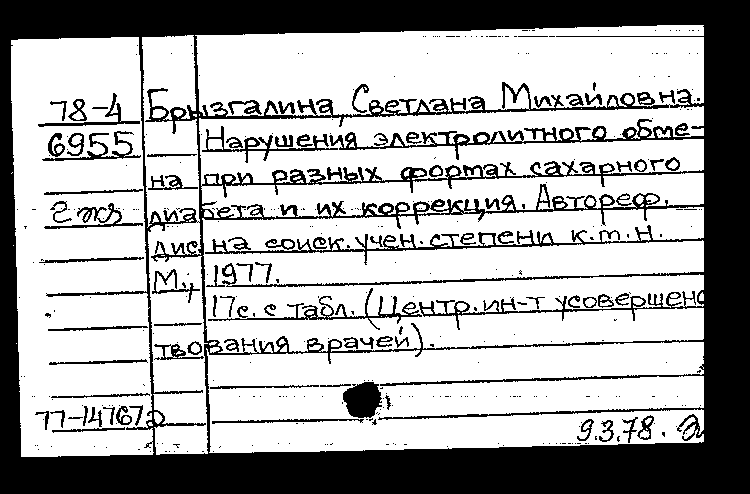 78-4 Брызгалина, Светлана Михайловна.
6955 Нарушения электролитного обме-
на при разных формах сахарного
2 экз диабета и их коррекция. Автореф.
дис. на соиск. учен. степени к.м.н.
М., 1977.
17с. с табл. (Центр. ин-т усовершенс
твования врачей).
77-14767а
9.3.78.